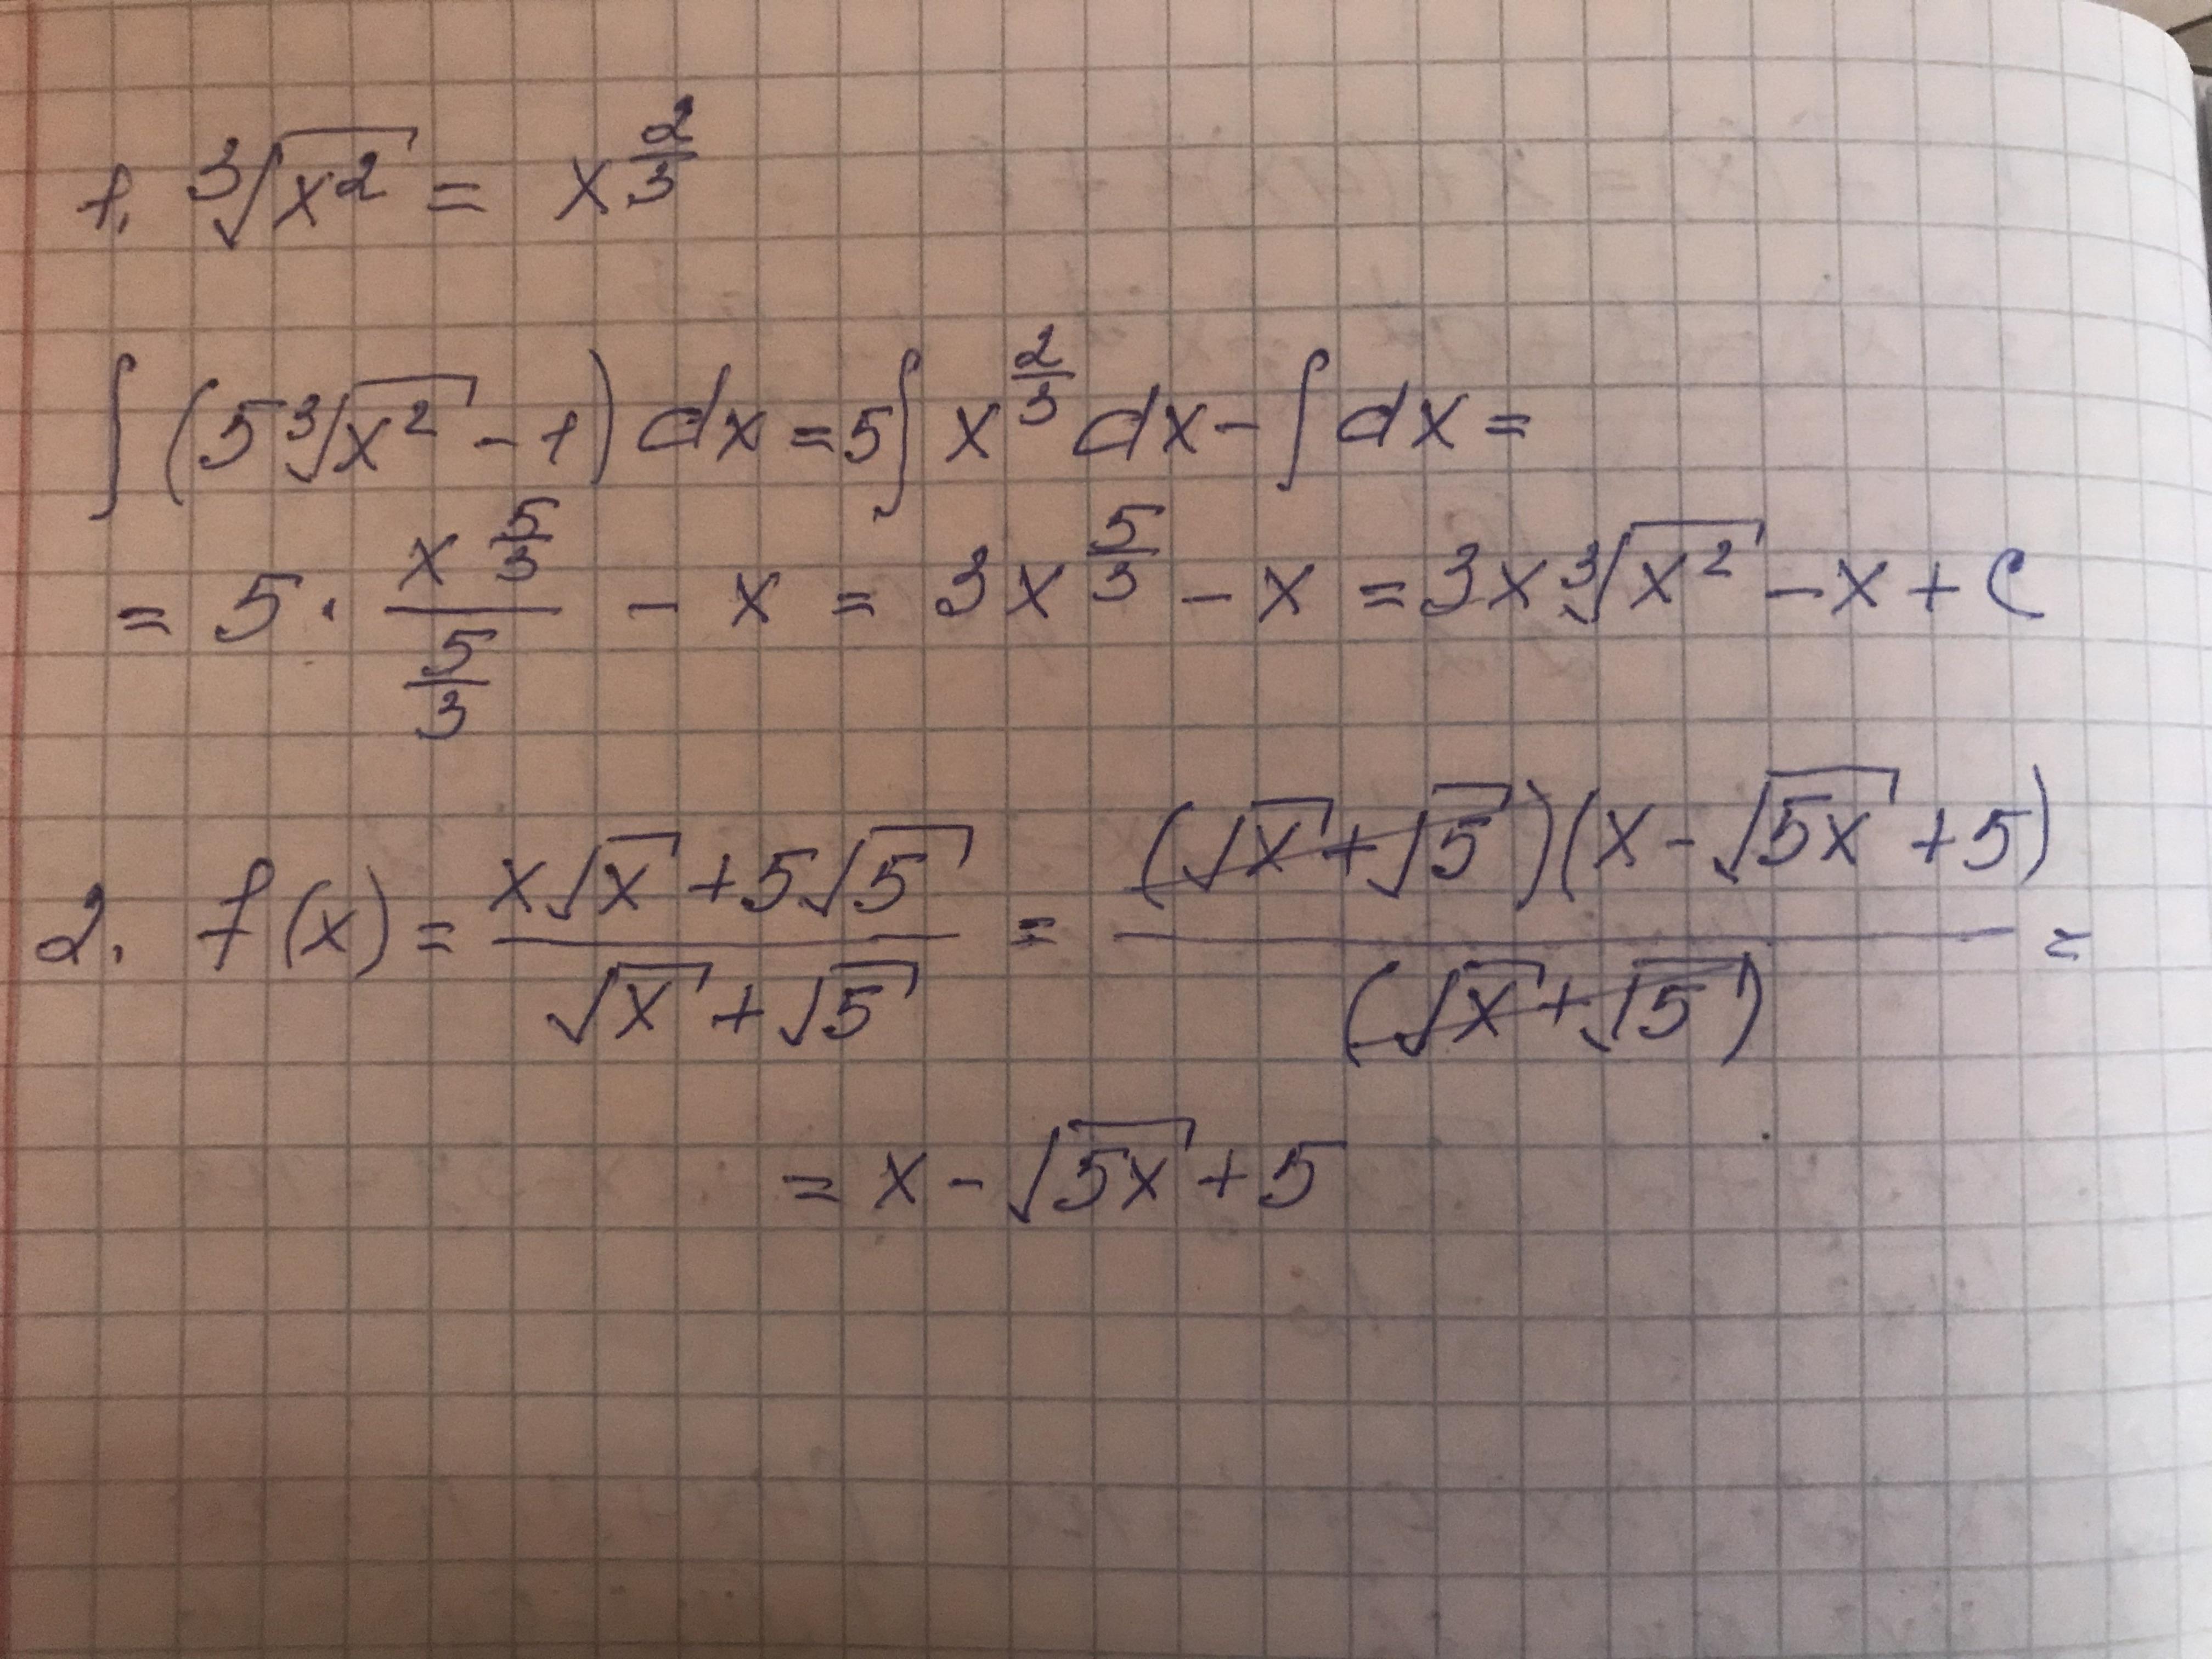 1. ∛(x²) = x^(2/3)
∫(5∛(x²) - 1) dx = 5∫x^(2/3) dx - ∫dx =
= 5 · (x^(5/3))/(5/3) - x = 3x^(5/3) - x = 3x∛(x²) - x + C
2. f(x) = (x√x + 5√5)/(√x + √5) = ((√x + √5)(x - √(5x) + 5))/((√x + √5)) =
= x - √(5x) + 5